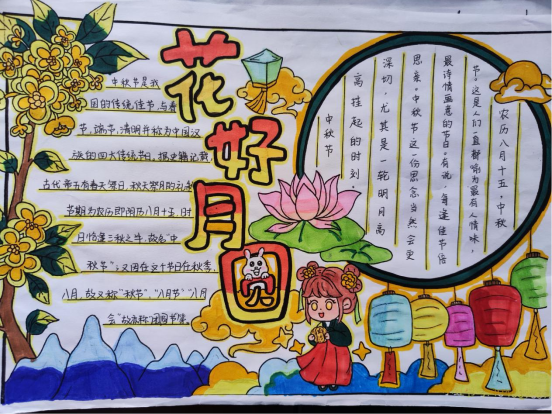 花好月圆
中秋节是我
国的传统佳节,与春
节、端节、清明并称为中国汉
族的四大传统节日。据史籍记载,
古代帝王有春天祭日、秋天祭月的礼制,
节期为农历即阴历八月十五,时
日恰逢三秋之半,故名"中
秋节";又因在这个节日在秋季、
八月,故又称"秋节"、"八月节""八月
会""故亦称"团圆节
农历八月十五,中秋
节,这是人们一直都称为最有人情味,
最诗情画意的节日。有说,每逢佳节倍
思亲。中秋节这份思念当然会更
深切,尤其是一轮明月高
高挂起的时刻,
中秋节